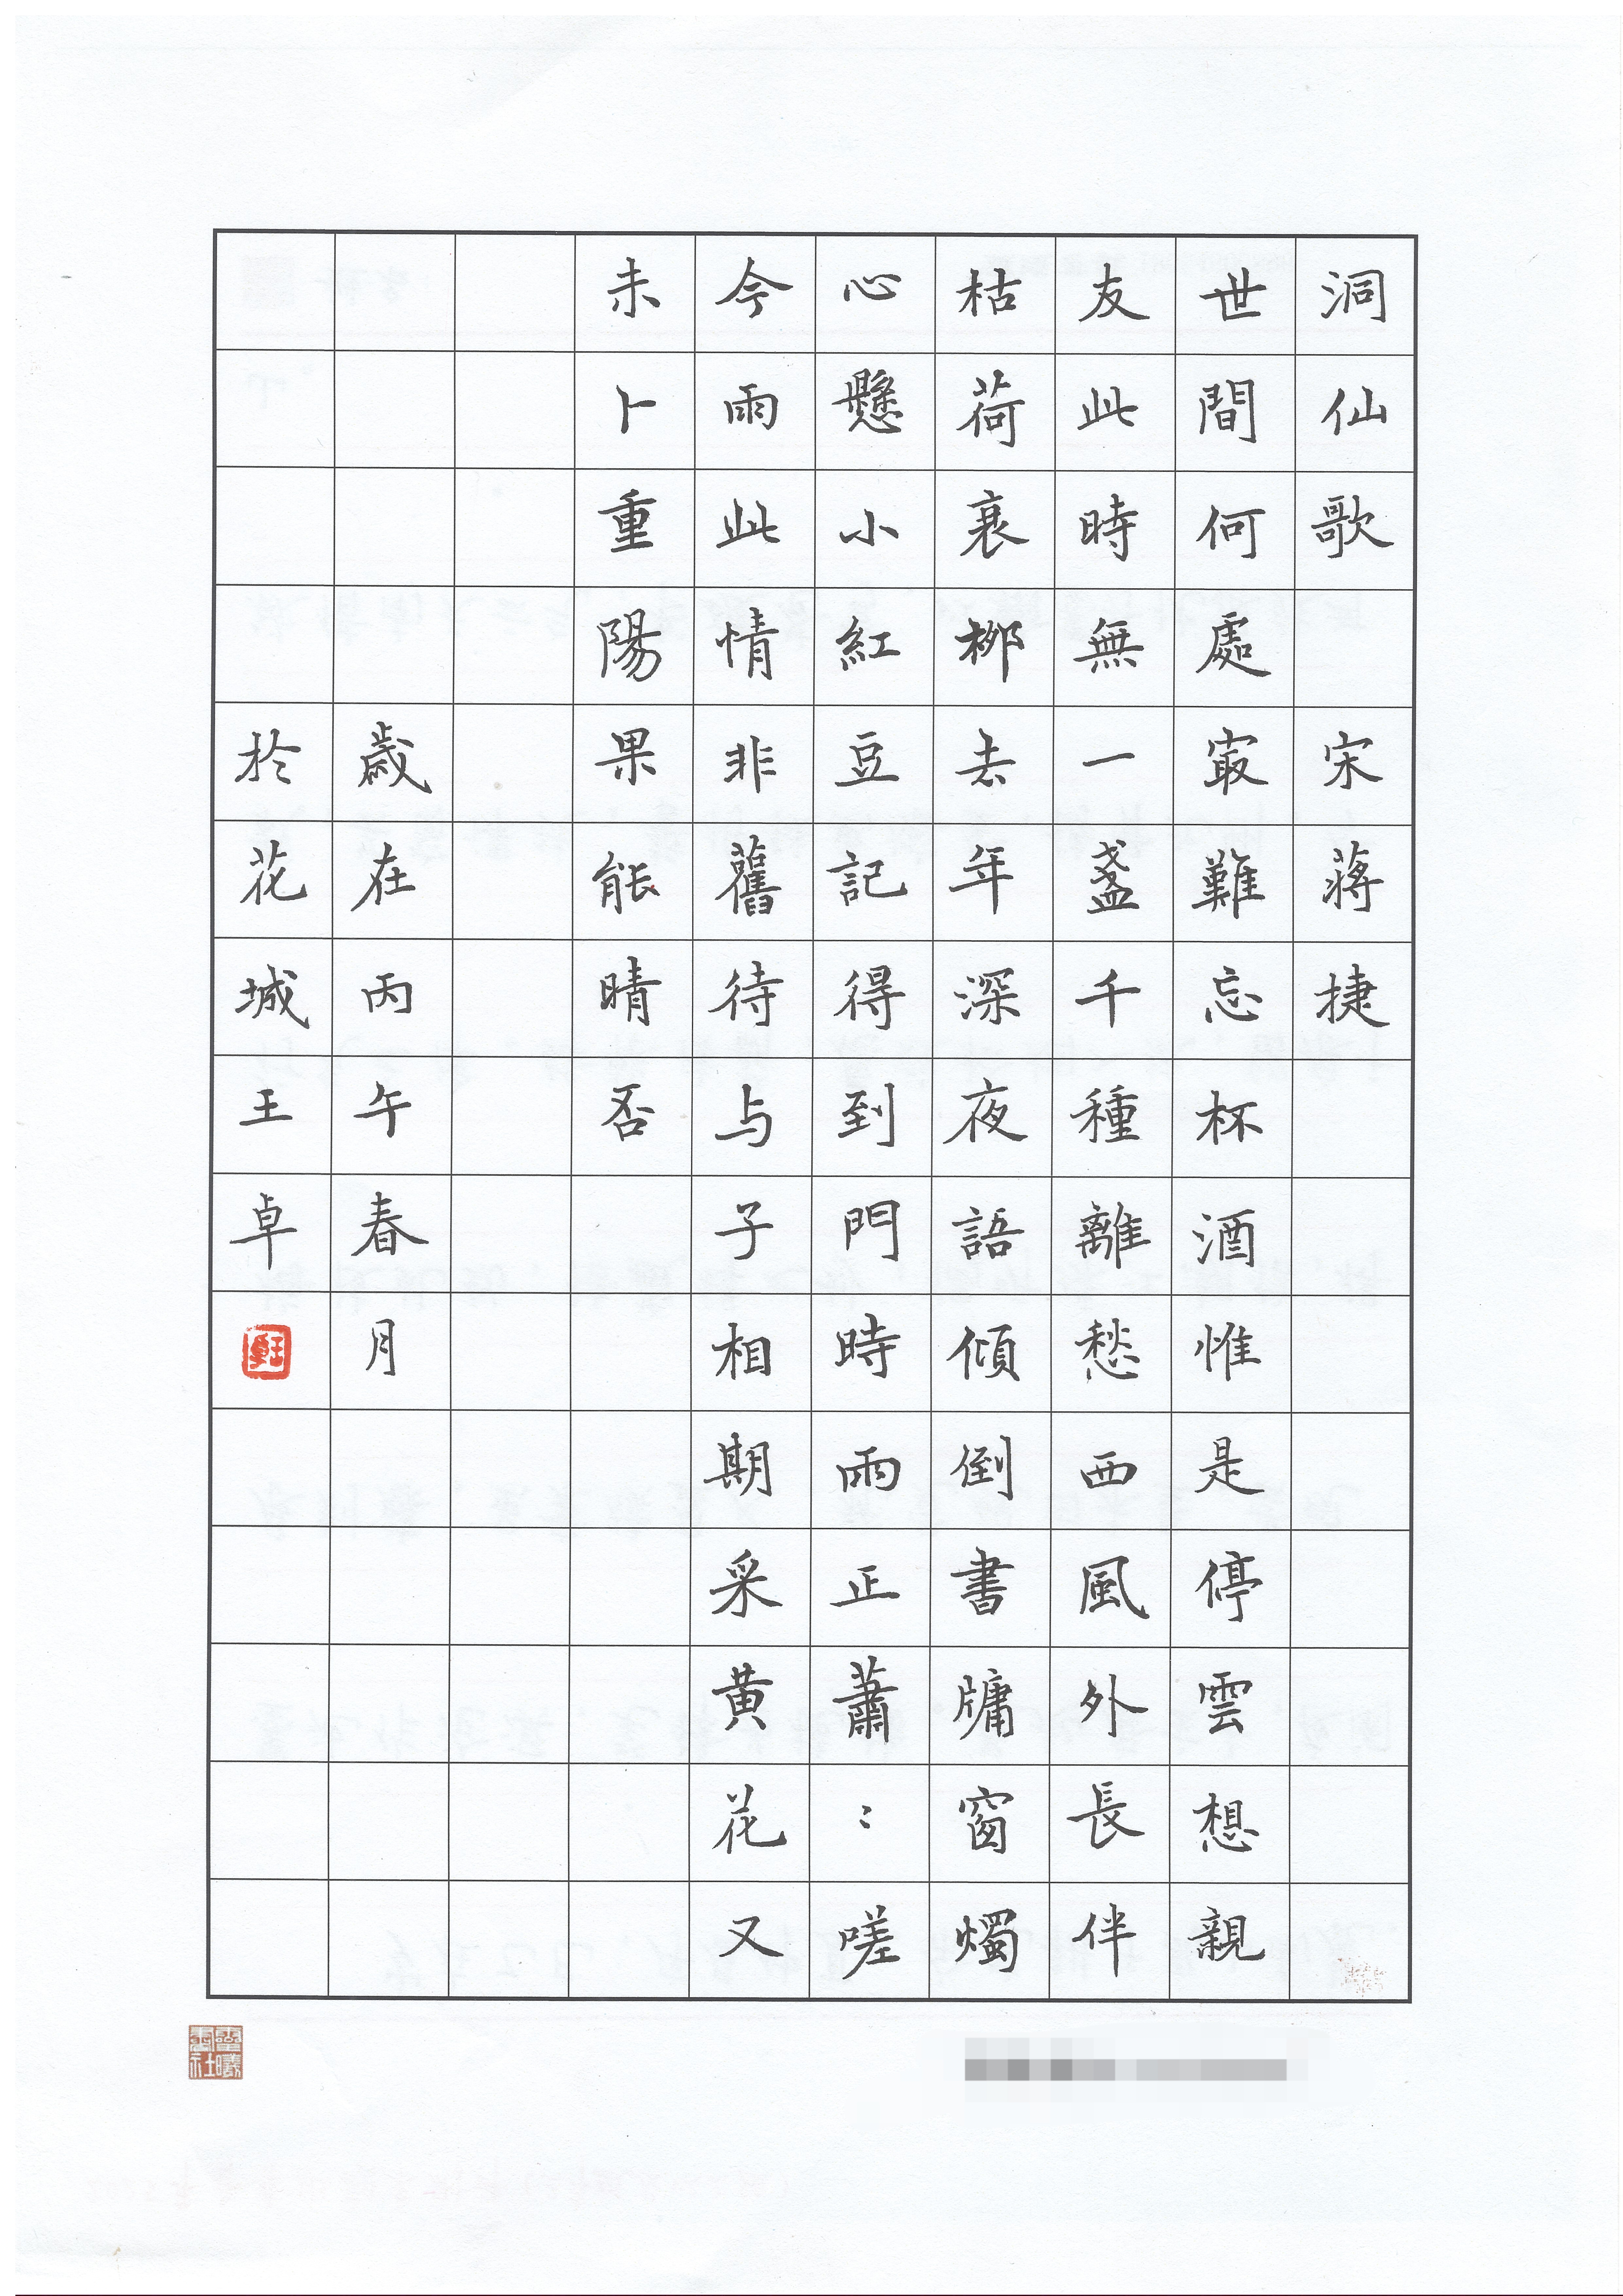 洞仙歌 宋蔣捷
世間何處寂難忘杯酒惟是停雲想親
友此時無一盞千種離愁西風外長伴
枯荷衰柳去年深夜語傾倒書牗窗燭
心懸小紅豆記得到門時雨正蕭：嗟
今雨此情非舊待与子相期采黃花又
未卜重陽果能晴否
歲在丙午春月
於花城王卓